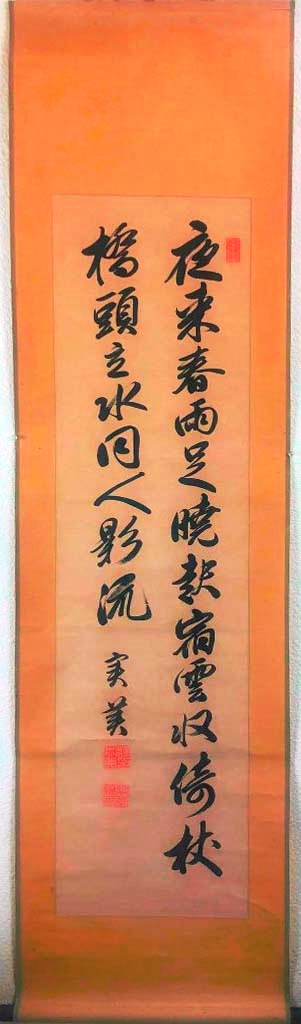 夜来春雨足曉起宿雲收倚杖
橋頭立水同人影流
実美